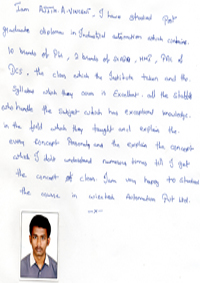 I am AJITH.A.VARIENT, I have studied Post
graduate diploma in Industrial automation which contains.
10 brands of Plc, 2 brands of SCADA, HMI, PLC &
DCS, the class which the Institute taken and the
Syllabus which they cover is Excellent. all the staffs
who handle the subject which has exceptional knowledge.
in the field which they taught and explain the
every concept Personaly and the explain the concept
which I didn't understand numerous times till I get
the concept of clear. I am very happy to studied
the course in wiretech Automation Pvt Ltd.